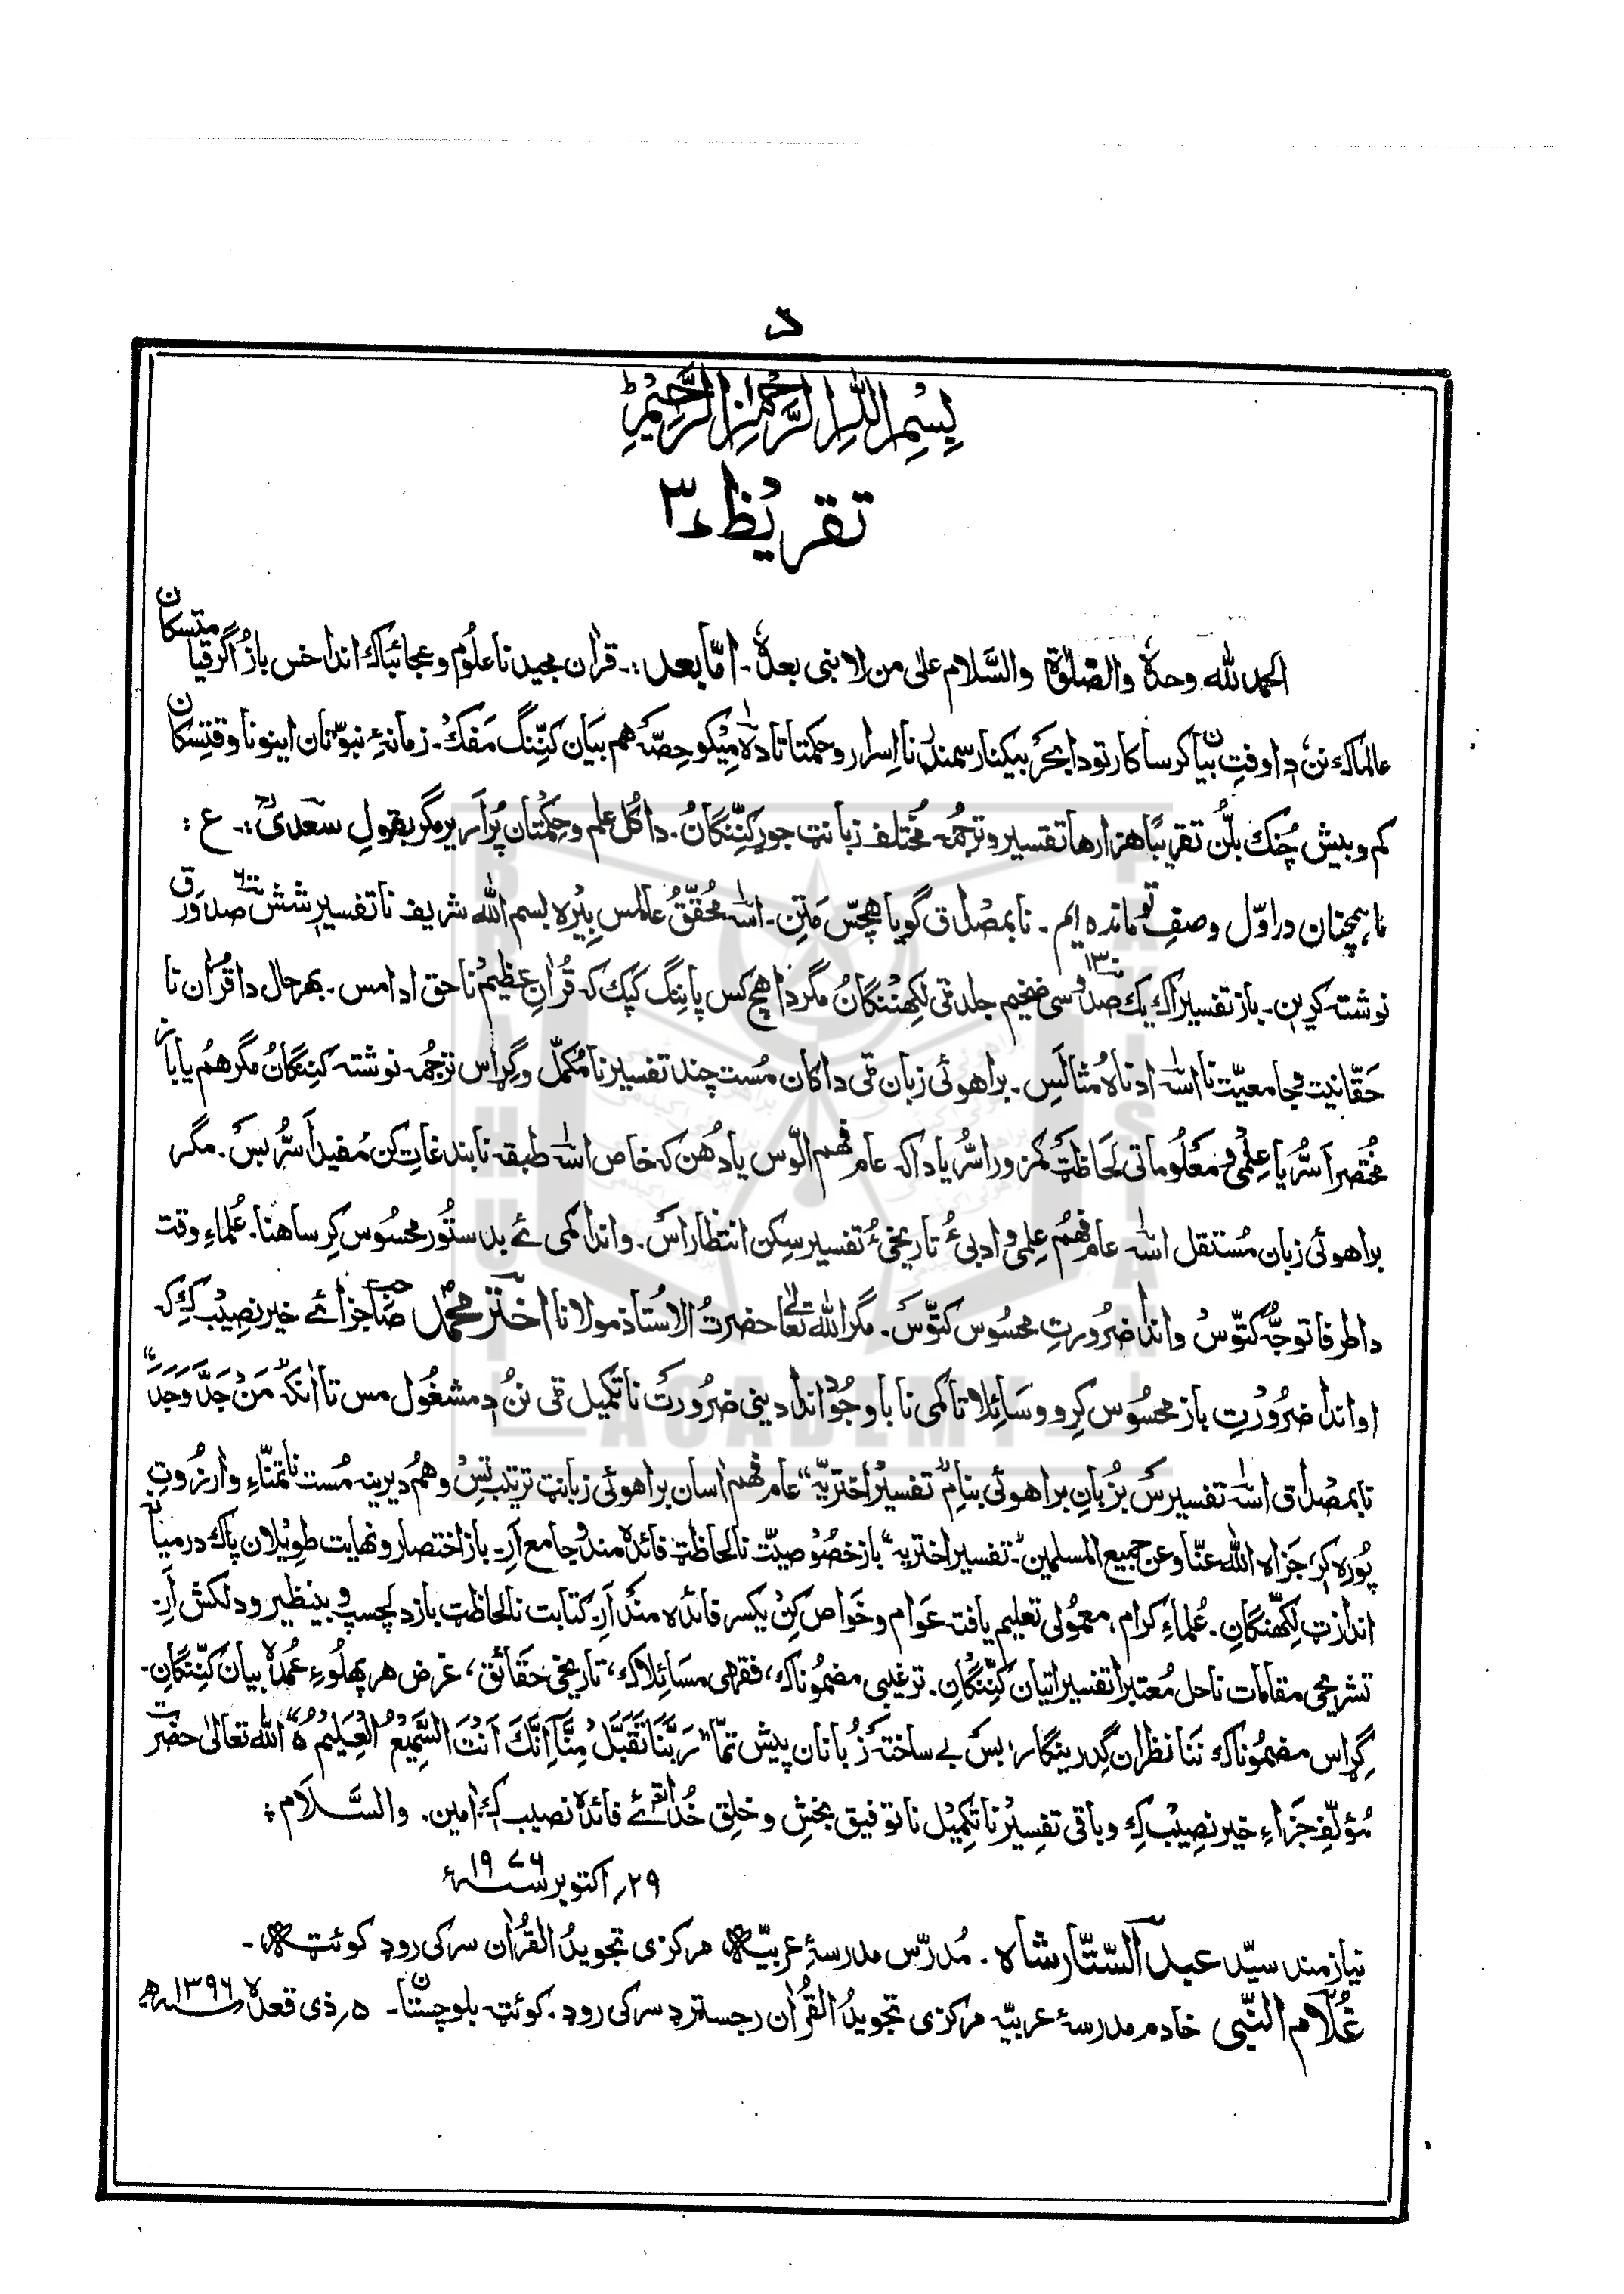 د
بِسْمِ اللّٰهِ الرَّحْمٰنِ الرَّحِيْمِ ط
تقریظ ۳
الحمد للّٰه وحدهٗ والصّلوٰة والسَّلام علیٰ من لا نبی بعدهٗ۔ امّا بعد :۔ قراٰن مجید نا علُوم و عجائباک اندا خس بازُ اگر قیامتسکان
عالماک نن دا وقتِ بیان کرسا کار تو دا بحرِ بیکنار سمندر نا اِسرار و حکمتا تا دہ مِیکو حِصّہ ہم بیان کننِگ مَفک۔ زمانۂ نبویؐ نان اینو نا وقتسکان
کم و بیش چُنک بلُن تقریبًا ہزارہا تفسیر و ترجمہ مختلف زبانت جوڑ کننگانُ۔ دا کُل علم و حِکمتان پُر اَریر مگر بقولِ سعدیؒ :۔ ع :
ما ہمچنان در اوّل وصفِ تو ماندہ ایم ۔ نا بمصداق گویا ہچس مَتن۔ اسہ محُقِّقُ عالمس بیرہ بسم اللّٰه شریف نا تفسیرٕ شش صد ۶۰۰ ورق
نوشتہ کرین۔ باز تفسیراک یک صد و سی ۱۳۰ ضخیم جلد ٹی لکھنگانُ مگر دا ہچ کس پاننگ کپک کہ قُراٰنِ عظیم نا حق ادا مس۔ بہرحال دا قُراٰن نا
حَقّانیت و جامعیّت نا اسہ ادناہُ مثالَس۔ براہوئی زبان ٹی داکان مُست چند تفسیر نامُکمّل و گِڑاس ترجمہ نوشتہ کننگانُ مگر ہم یا باز
مختصر اَسُر یا عِلمی و معلُوماتی لحاظٹ کمزور اسُر یا داکہ عام فہم الّوس یا دُہن کہ خاص اسہ طبقہ نا بندغاتِ کن مُفید اَسُر بس۔ مگر
براہوئی زبان مُستقل اسہ عام فہمُ عِلمی و ادبیُ تاریخیُ تفسیرسِکن انتظار اس۔ و اندا کمی ئے بدستُور محسُوس کرِ ساہنا۔ عُلماءِ وقت
دا طرفا توجُّہ کتّوس و اندا ضرُورتِ محسُوس کتّوس۔ مگر اللّٰه تعالےٰ حضرتُ الاُستاذ مولانا اختر محمّد صاحب جزائے خیر نصیب کے کہ
او اندا ضرُورتِ باز محسُوس کرو و سَائلاتا کمی نا باوجُود اندا دینی ضرُورت نا تکمیل ٹی نن دٕ مشغُول مس تا آنکہ ”مَنْ جَدَّ وَجَدَ“
نا بمصداق اسہ تفسیرس بزُبانِ براہوئی بنامِ ”تفسیرِ اختریّہ“ عام فہم اسان براہوئی زبانٹ ترتیب تِس و ہم دیرینہ مُست نا تمنّاءِ و ارزوتِ
پُورہ کرٕ جَزاہ اللّٰه عنّا و عن جمیع المسلمین۔ ”تفسیر اختریہ“ باز خصُوصیّت نا لحاظٹ فائدہ مند و جامع اَر۔ باز اختصار و نہایت طوِیلان پاک درمیانی
اندازٹ لِکھنگانِ۔ عُلماءِ کرام، معمُولی تعلیم یافتہ عَوام و خَواص کِن یکسر فائدہ مند اَر کتابت نا لحاظٹ باز دلچسپ و بینظیر و دلکش اَر۔
تشریحی مقامات نا حل مُعتبر ا تفسیراتیان کننگانِ۔ ترغیبی مضمُوناک، فقہی مسائلاک، تاریخی حقائق، غرض ہر پہلوءِ عمُدہ بیان کننگانِ۔
گِڑاس مضمُوناک ننا نظران گدرینگارٕ بس بے ساختہ زُبانان پیش تمّا ”رَبَّنَا تَقَبَّلْ مِنَّآ اِنَّكَ اَنْتَ السَّمِيْعُ الْعَلِيْمُ ہ“ اللّٰه تعالیٰ حضرت
مُؤلِّفِ جَزاءِ خیر نصِیب کے و باقی تفسیر نا تکمیل نا توفیق بخشِ و خلقِ خُدا تعالیٰ ئے فائدہ نصیب کے۔ اٰمین۔ والسَّلام ؛
۲۹؍ اکتوبر ۱۹۷۶ء
نیازمند سیّد عبد السّتّار شاہ ۔ مُدرّس مدرسۂِ عربیّہ مرکزی تجویدُ القُراٰن سرکی روڈ کوئٹہ ۔
غُلام النّبی خادم مدرسۂ عربیّہ مرکزی تجویدُ القُراٰن رجسٹرڈ سرکی روڈ۔ کوئٹہ بلوچستان۔ ۵؍ ذی قعدہ ۱۳۹۶ھ
BRAHUI PAKISTAN ACADEMY